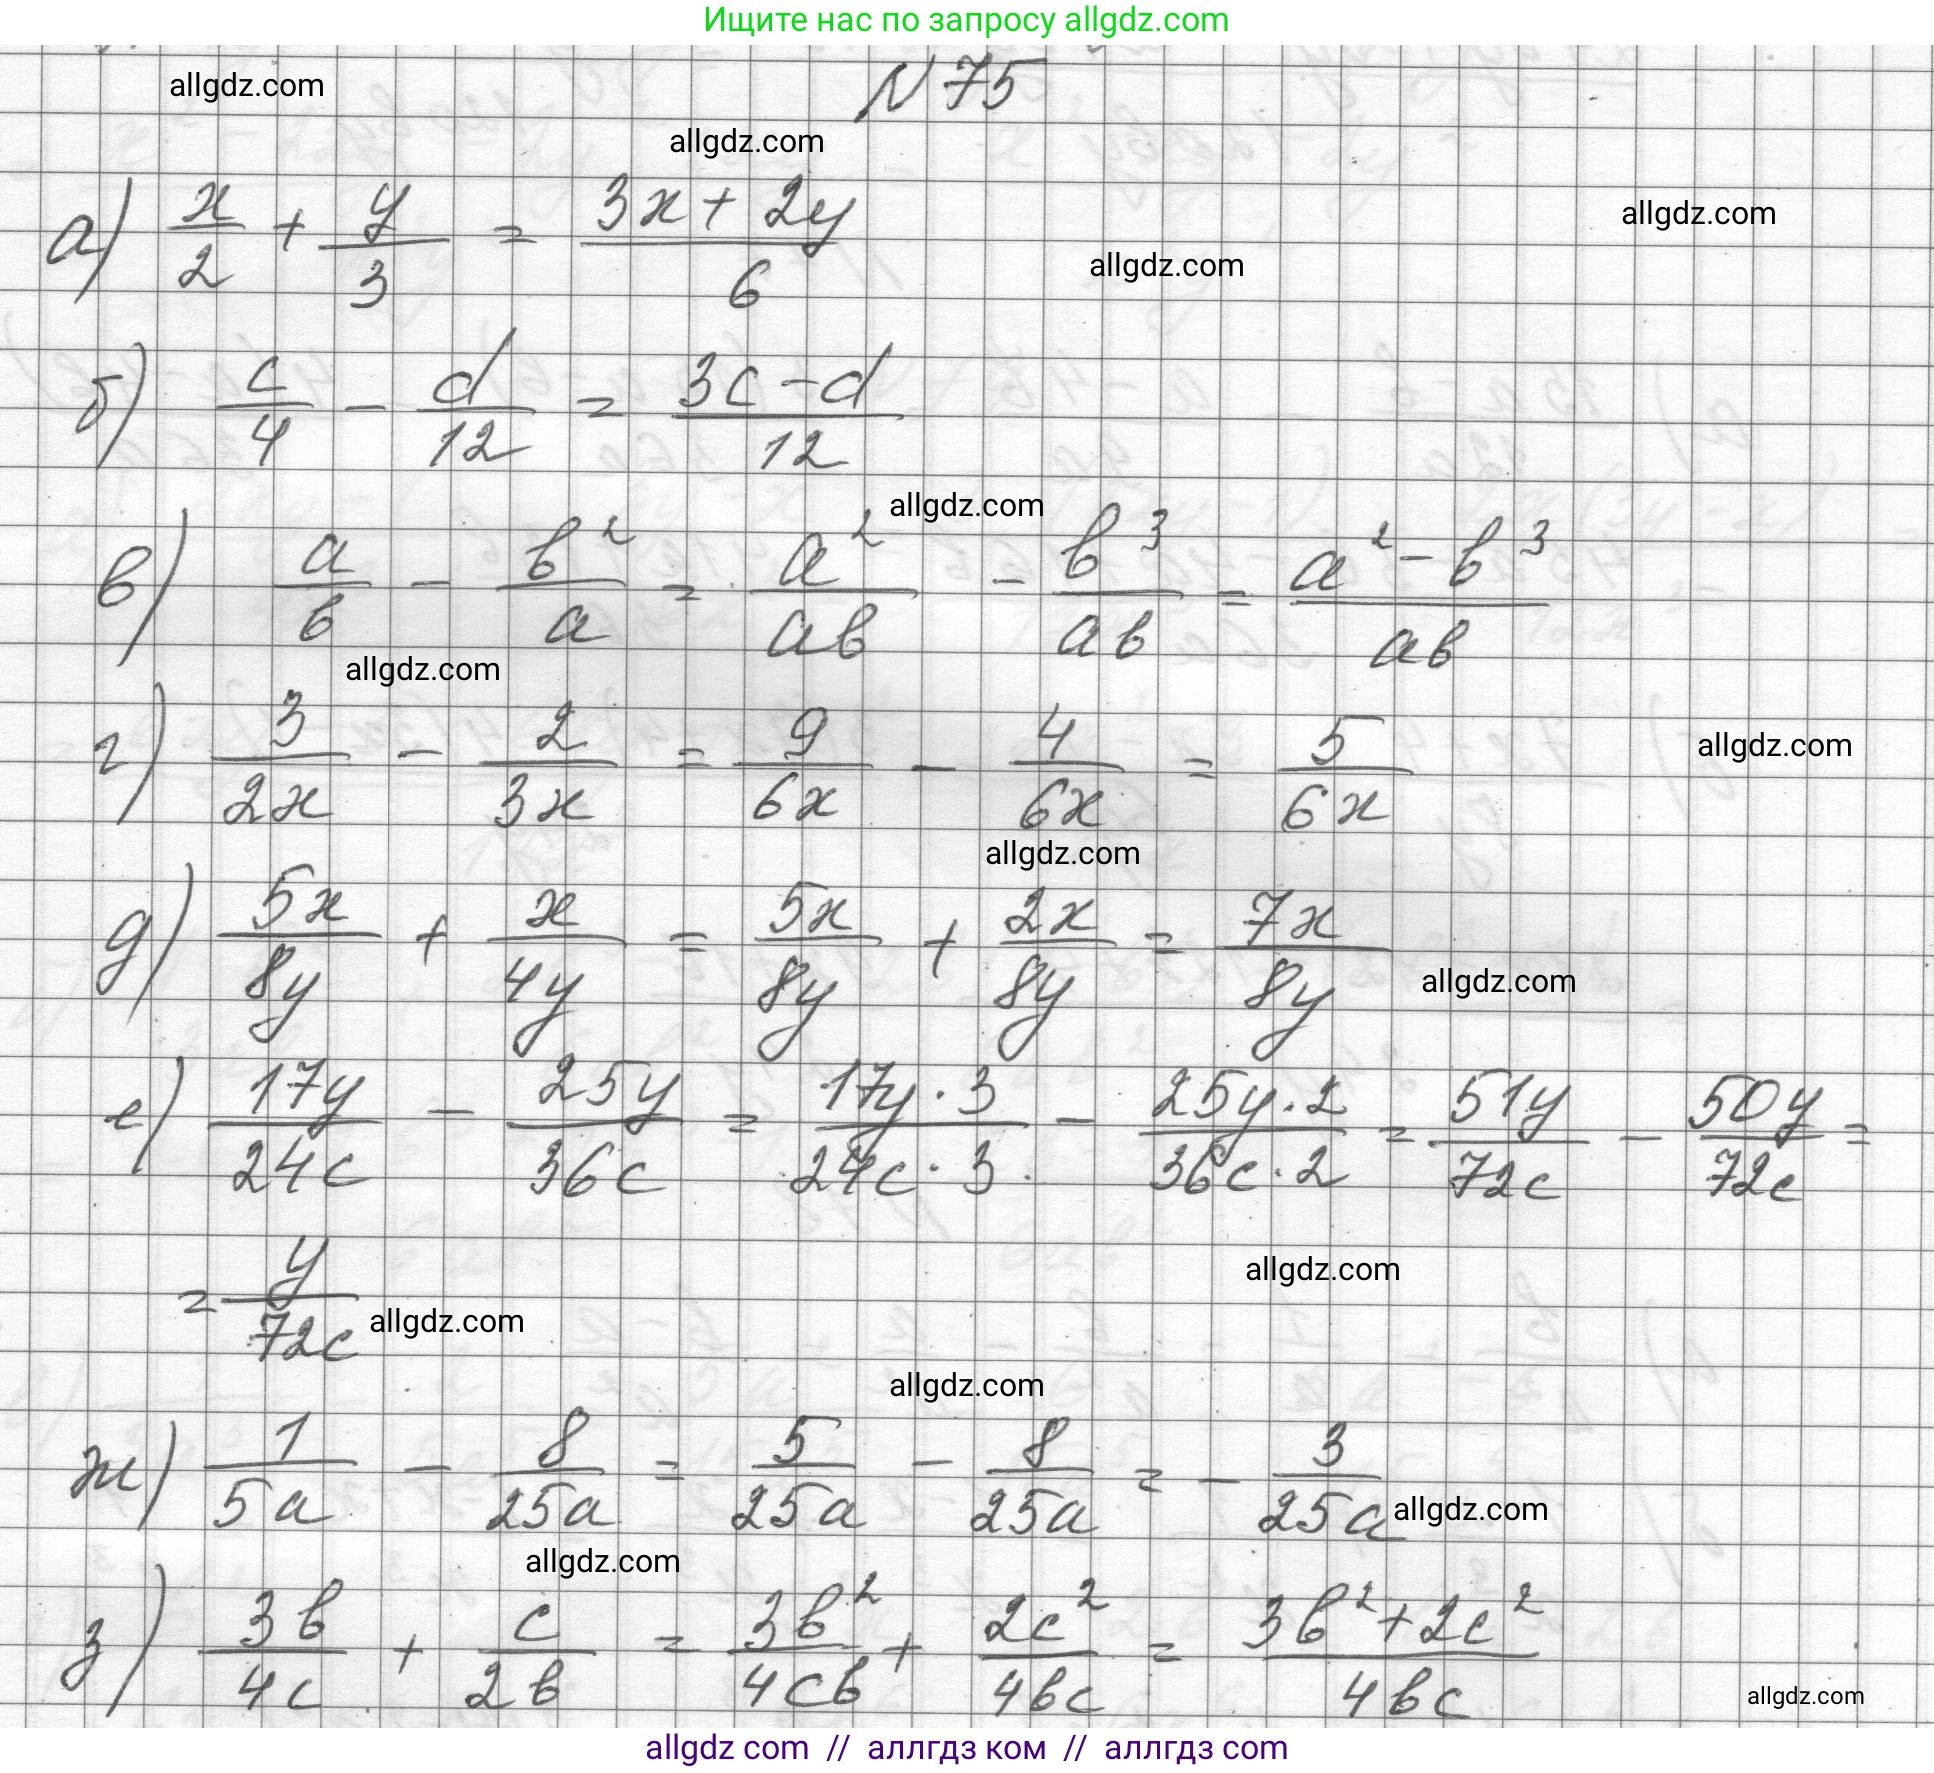 Ищите нас по запросу allgdz.com
allgdz.com
N 75
allgdz.com
а) x/2 + y/3 = (3x + 2y)/6
allgdz.com
allgdz.com
б) c/4 - d/12 = (3c - d)/12
allgdz.com
в) a/b - b²/a = a²/ab - b³/ab = (a² - b³)/ab
allgdz.com
г) 3/2x - 2/3x = 9/6x - 4/6x = 5/6x
allgdz.com
allgdz.com
д) 5x/8y + x/4y = 5x/8y + 2x/8y = 7x/8y
allgdz.com
е) 17y/24c - 25y/36c = (17y · 3)/(24c · 3) - (25y · 2)/(36c · 2) = 51y/72c - 50y/72c =
= y/72c
allgdz.com
allgdz.com
allgdz.com
ж) 1/5a - 8/25a = 5/25a - 8/25a = - 3/25a
allgdz.com
allgdz.com
з) 3b/4c + c/2b = 3b²/4cb + 2c²/4bc = (3b² + 2c²)/4bc
allgdz.com
allgdz com // аллгдз ком // аллгдз com